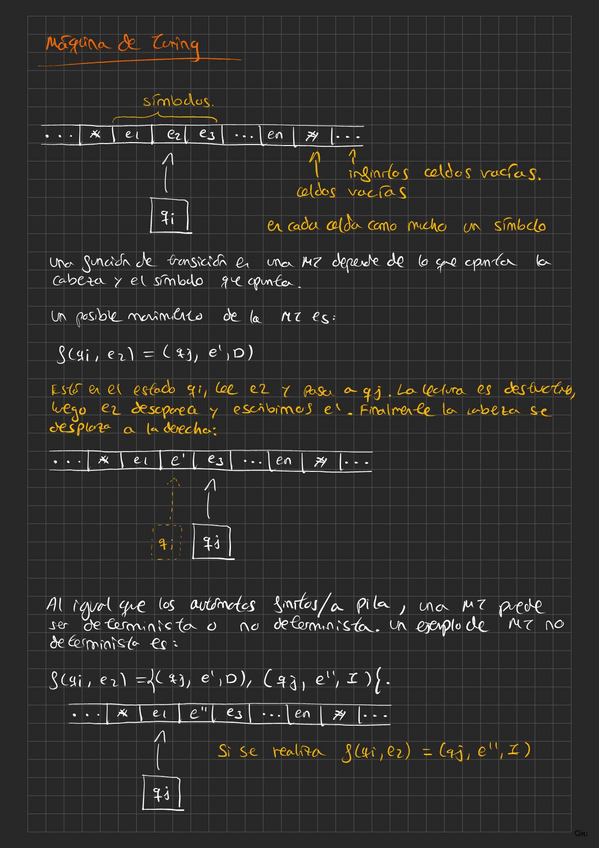 Máquina de Turing
símbolos.
... * e1 e2 e3 ... en * ...
infinitas celdas vacías.
celdas vacías
qi
en cada celda como mucho un símbolo
Una función de transición en una MT depende de lo que apunta la
cabeza y el símbolo que apunta.
Un posible movimiento de la MT es:
f(qi, e2) = (qj, e', D)
Está en el estado qi, lee e2 y pasa a qj. La lectura es destructiva,
luego e2 desaparece y escribimos e'. Finalmente la cabeza se
desplaza a la derecha:
... * e1 e' e3 ... en * ...
qi qj
Al igual que los autómatas finitos/a pila, una MT puede
ser determinista o no determinista. Un ejemplo de MT no
determinista es:
f(qi, e2) = {(qj, e', D), (qj, e'', I)}.
... * e1 e'' e3 ... en * ...
Si se realiza f(qi, e2) = (qj, e'', I)
qj